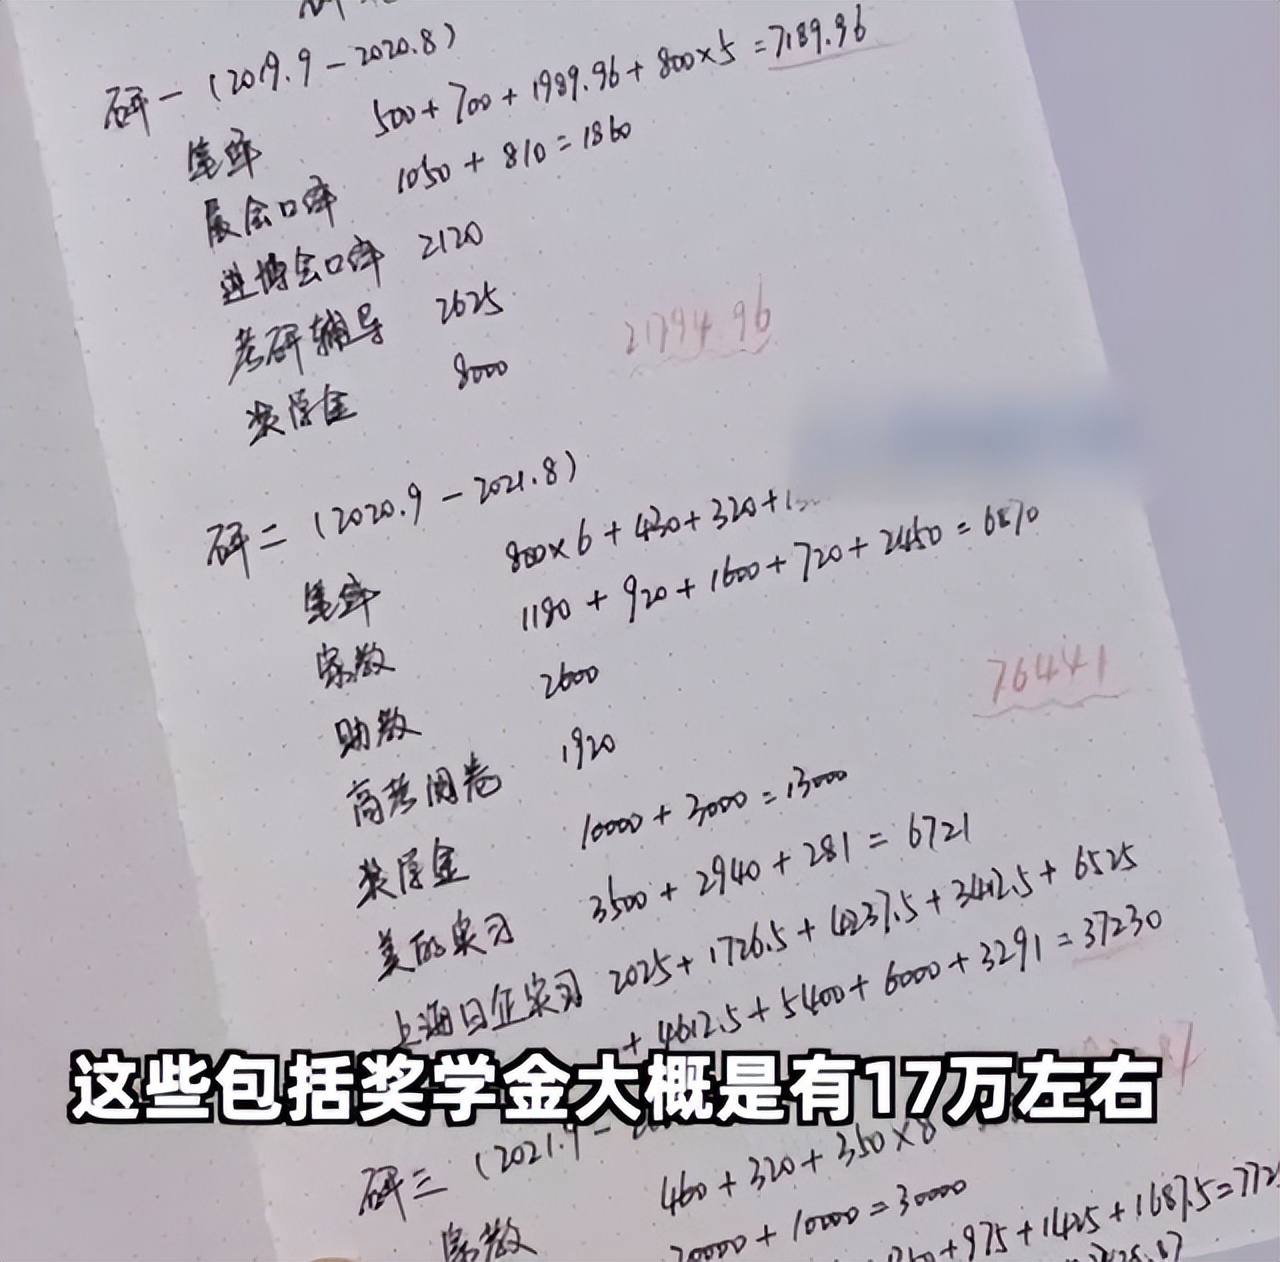 研一（2019.9-2020.8）
笔译 500+700+1989.96+800×5=7189.96
展会口译 1050+810=1860
进博会口译 2120
考研辅导 2625
奖学金 8000
21794.96
研二（2020.9-2021.8）
笔译 800×6+430+320+
家教 1180+920+1600+720+2450=6870
助教 2600
高考阅卷 1920
76441
奖学金 10000+3000=13000
美的实习 3500+2940+281=6721
上海日企实习 2025+1726.5+4237.5+3412.5+6525
+4612.5+5400+6000+3291=37230
这些包括奖学金大概是有17万左右
研三（2021.9-
家教 460+320+350×8
20000+10000=30000
+975+1425+1687.5=772